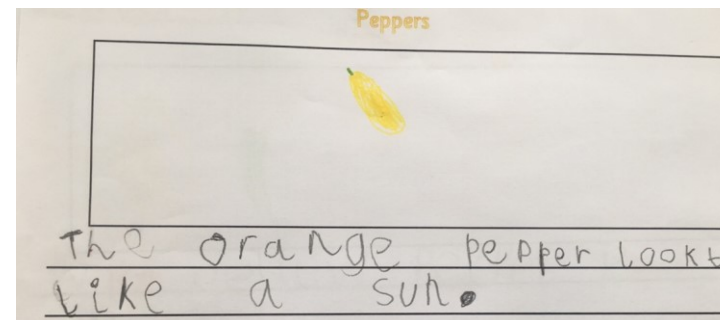 Peppers
The orange pepper lookt
like a sun.